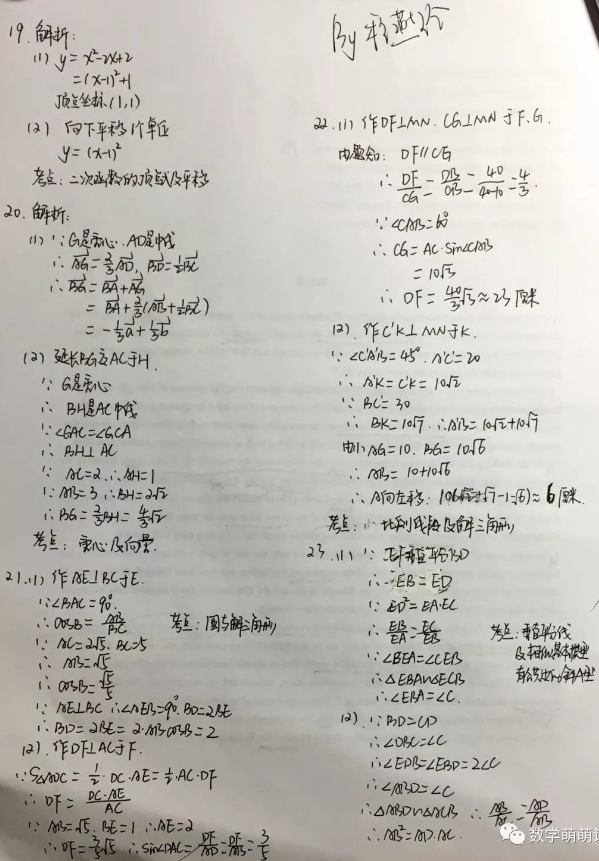 By
19. 解析:
(1) y = x²-2x+2
= (x-1)²+1
顶点坐标 (1,1)
(2) 向下平移1个单位
y = (x-1)²
考点: 二次函数的顶点式及平移
20. 解析:
(1) ∵G是重心.AD是中线
∴ AG = 2/3 AD, BD = 1/2 BC
∴ BG = BA + AG
= BA + 2/3 (AB + 1/2 BC)
= -1/3 a + 1/3 b
(2) 延长BG交AC于H.
∵ G是重心
∴ BH是AC中线
∵ ∠GAC=∠GCA
∴ BH⊥AC
∵ AC=2 ∴AH=1
∵ AB=3 ∴BH=2√2
∴ BG = 2/3 BH = 4/3 √2
考点: 重心及向量.
21. (1) 作AE⊥BC于E.
∵∠BAC=90°
∴ cosB = AB/BC
考点: 圆与解三角形
∵ AC=2√5. BC=5
∴ AB=√5
∴ cosB = √5/5
∵ AE⊥BC ∴∠AEB=90° BD=2BE
∴ BD=2BE=2·AB·cosB=2
(2). 作DF⊥AC于F.
∵ S△ADC = 1/2·DC·AE = 1/2·AC·DF
∴ DF = DC·AE/AC
∵ AB=√5. BE=1 ∴AE=2
∴ DF = 3/5 √5 ∴ sin∠DAC = DF/AD = DF/AB = 3/5
22. (1) 作DF⊥MN. CG⊥MN于F.G.
由题知: DF//CG
∴ DF/CG = DB/CB = 40/(40-10) = 4/3.
∵ ∠CAB=60°
∴ CG = AC·sin∠CAB
= 10√3
∴ DF = 40/3 √3 ≈ 23厘米
(2). 作C'K⊥MN于K.
∵ ∠C'A'B=45°. A'C'=20
∴ A'K=C'K=10√2
∵ BC'=30
∴ BK=10√7. ∴A'B=10√2+10√7
由(1)AG=10. BG=10√6
∴ AB=10+10√6
∴A向左移: 10(√2+√7-1-√6) ≈ 6厘米.
考点: 比例线段及解三角形
23. (1) ∵ EF垂直平分BD
∴ EB=ED
∵ ED²=EA·EC
∴ EB/EA = EC/EB
∵ ∠BEA=∠CEB
∴ △EBA∽△ECB
∴ ∠EBA=∠C.
考点: 垂直平分线
及相似基本模型
(2) ∵BD=CD
∴ ∠DBC=∠C
∴ ∠EDB=∠EBD=2∠C
∴ ∠ABD=∠C
∴ △ABD∽△ACB ∴ AB/AC = AD/AB
∴ AB²=AD·AC.
数学萌萌